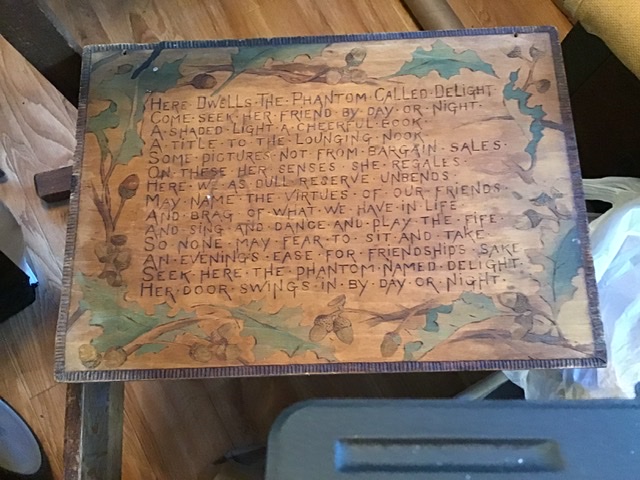 HERE·DWELLS·THE·PHANTOM·CALLED·DELIGHT
COME·SEEK·HER·FRIEND·BY·DAY·OR·NIGHT·
A·SHADED·LIGHT·A·CHEERFUL·BOOK
A·TITLE·TO·THE·LOUNGING·NOOK
SOME·PICTURES·NOT·FROM·BARGAIN·SALES·
ON·THESE·HER·SENSES·SHE·REGALES·
HERE·WE·AS·DULL·RESERVE·UNBENDS·
MAY·NAME·THE·VIRTUES·OF·OUR·FRIENDS·
AND·BRAG·OF·WHAT·WE·HAVE·IN·LIFE
AND·SING·AND·DANCE·AND·PLAY·THE·FIFE·
SO·NONE·MAY·FEAR·TO·SIT·AND·TAKE
AN·EVENINGS·EASE·FOR·FRIENDSHIPS·SAKE
SEEK·HERE·THE·PHANTOM·NAMED·DELIGHT·
HER·DOOR·SWINGS·IN·BY·DAY·OR·NIGHT·